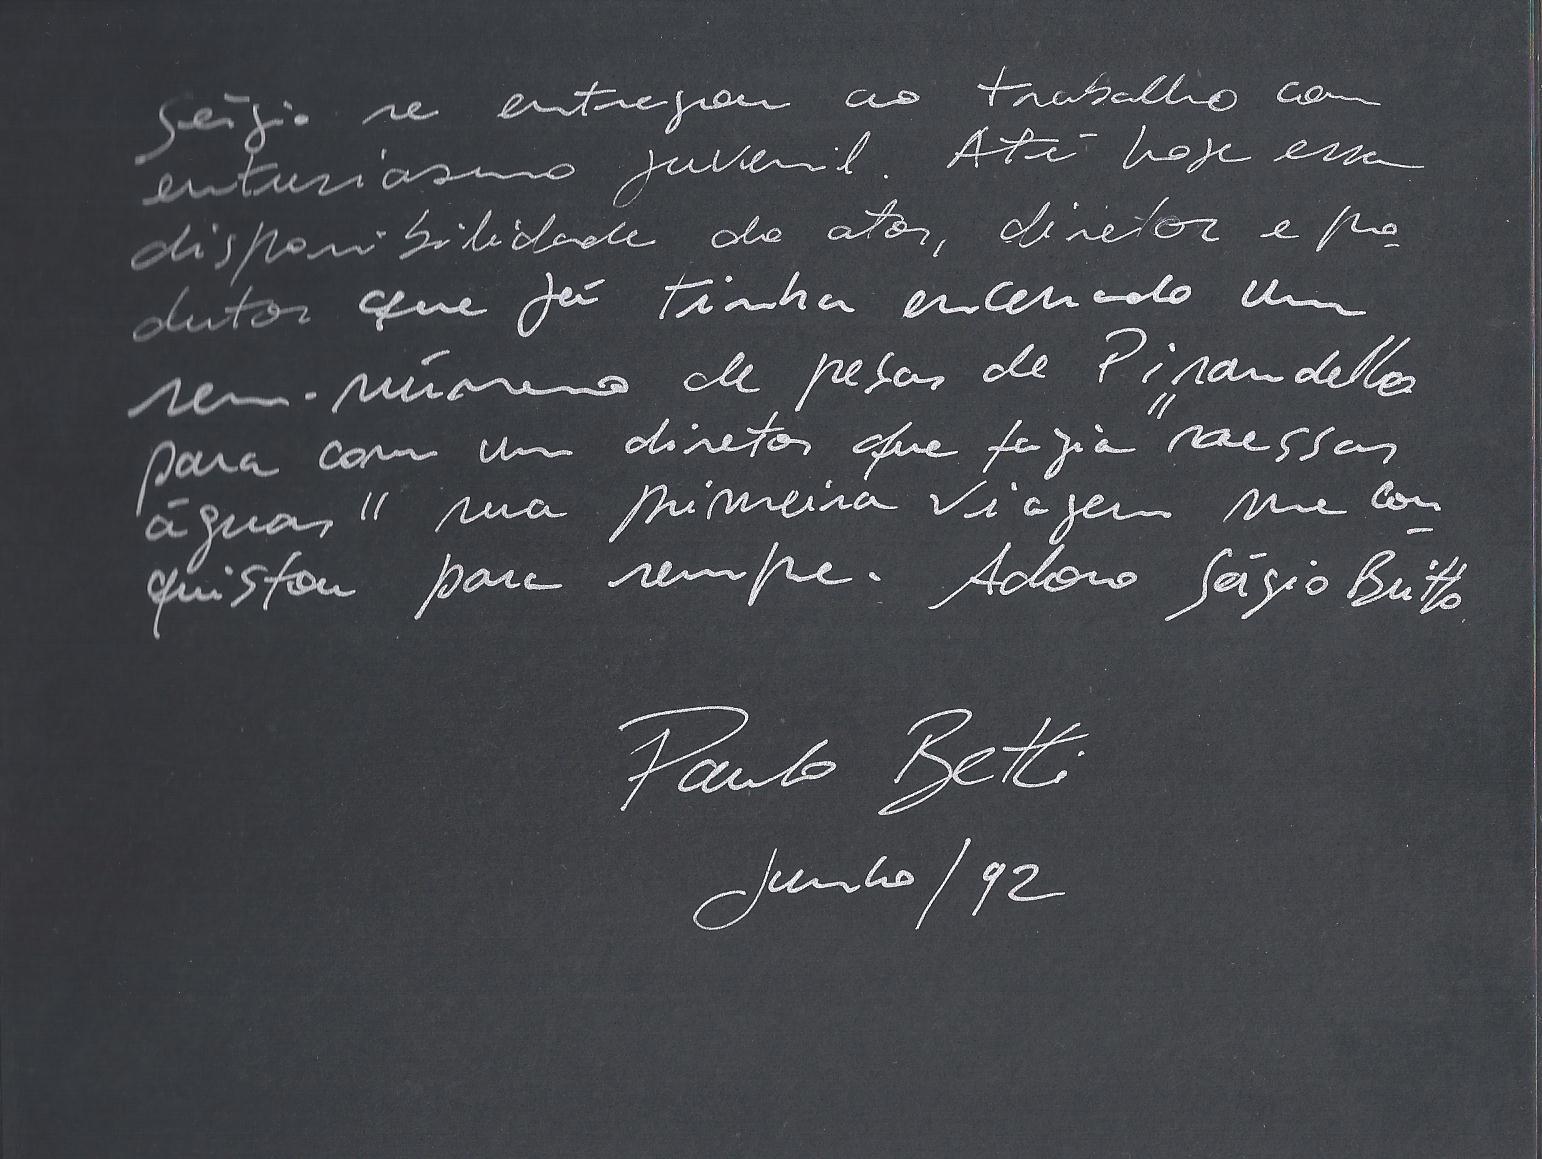 Sérgio se entregou ao trabalho com
entusiasmo juvenil. Até hoje essa
disponibilidade do ator, diretor e pro
dutor que já tinha encenado um
sem-número de peças de Pirandello
para com um diretor que fazia "naessas
águas" sua primeira viagem me con-
quistou para sempre. Adoro Sérgio Britto.
Paulo Betti
Junho/92